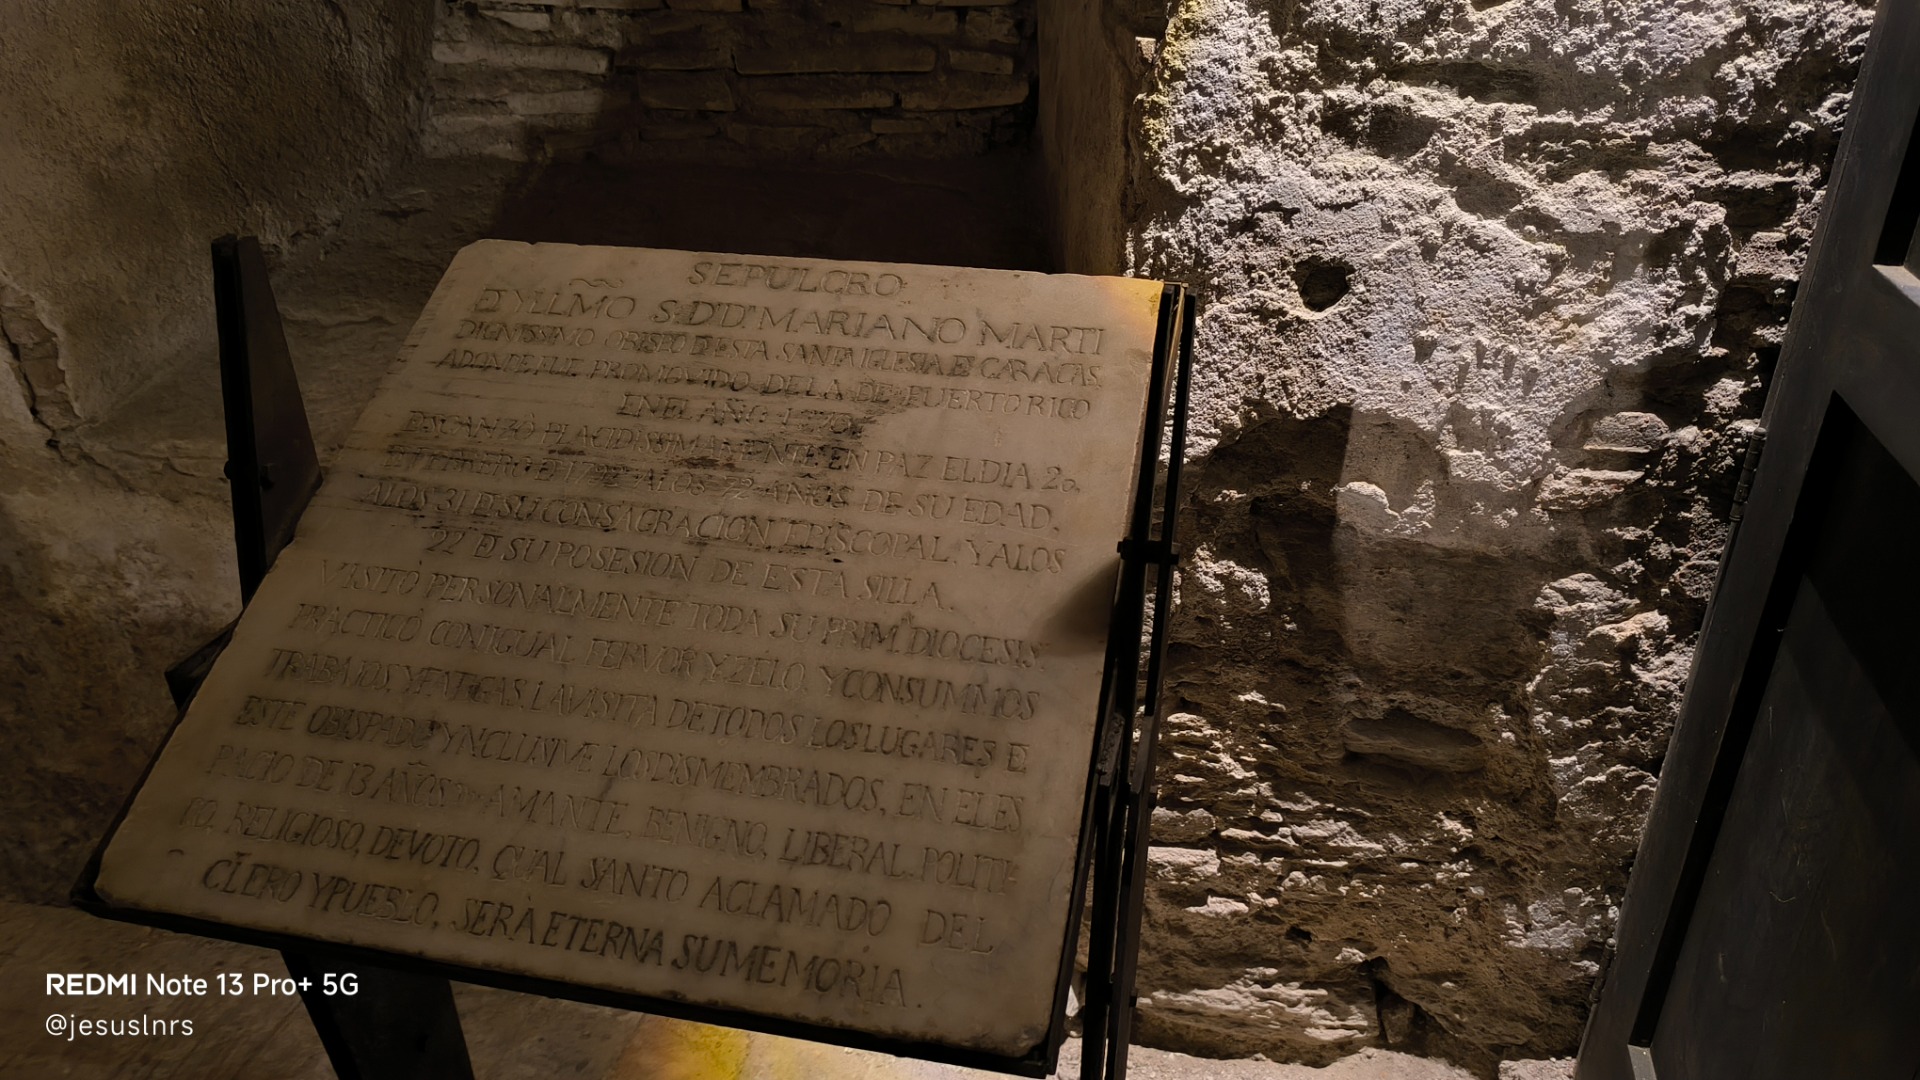 SEPULCRO
D̄ YLLMO S.D.D. MARIANO MARTI
DIGNISSIMO OBISPO D̄ ESTA SANTA IGLESIA D̄ CARACAS,
ADONDE FUE PROMOVIDO DE LA DE PUERTO RICO
EN EL AÑO 1770.
DESCANZÒ PLACIDISSIMAMENTE EN PAZ EL DIA 20.
D̄ FEBRERO D̄ 1792 A LOS 72 AÑOS DE SU EDAD.
A LOS 31 D̄ SU CONSAGRACION EPISCOPAL. Y A LOS
22 D̄ SU POSESION DE ESTA SILLA.
VISITÒ PERSONALMENTE TODA SU PRIM.ᴬ DIOCESIS.
PRÀCTICÒ CON IGUAL FERVOR Y ZELO, Y CON SUMMOS
TRABAJOS, Y FATIGAS, LA VISITA DE TODOS LOS LUGARES D̄
ESTE OBISPADO YNCLUSIVE LOS DISMEMBRADOS, EN EL ES
PACIO DE 13 AÑOS AMANTE, BENIGNO, LIBERAL, POLITI-
CO, RELIGIOSO, DEVOTO, QUAL SANTO ACLAMADO DEL
CLERO Y PUEBLO, SERÀ ETERNA SU MEMORIA.
REDMI Note 13 Pro+ 5G
@jesuslnrs